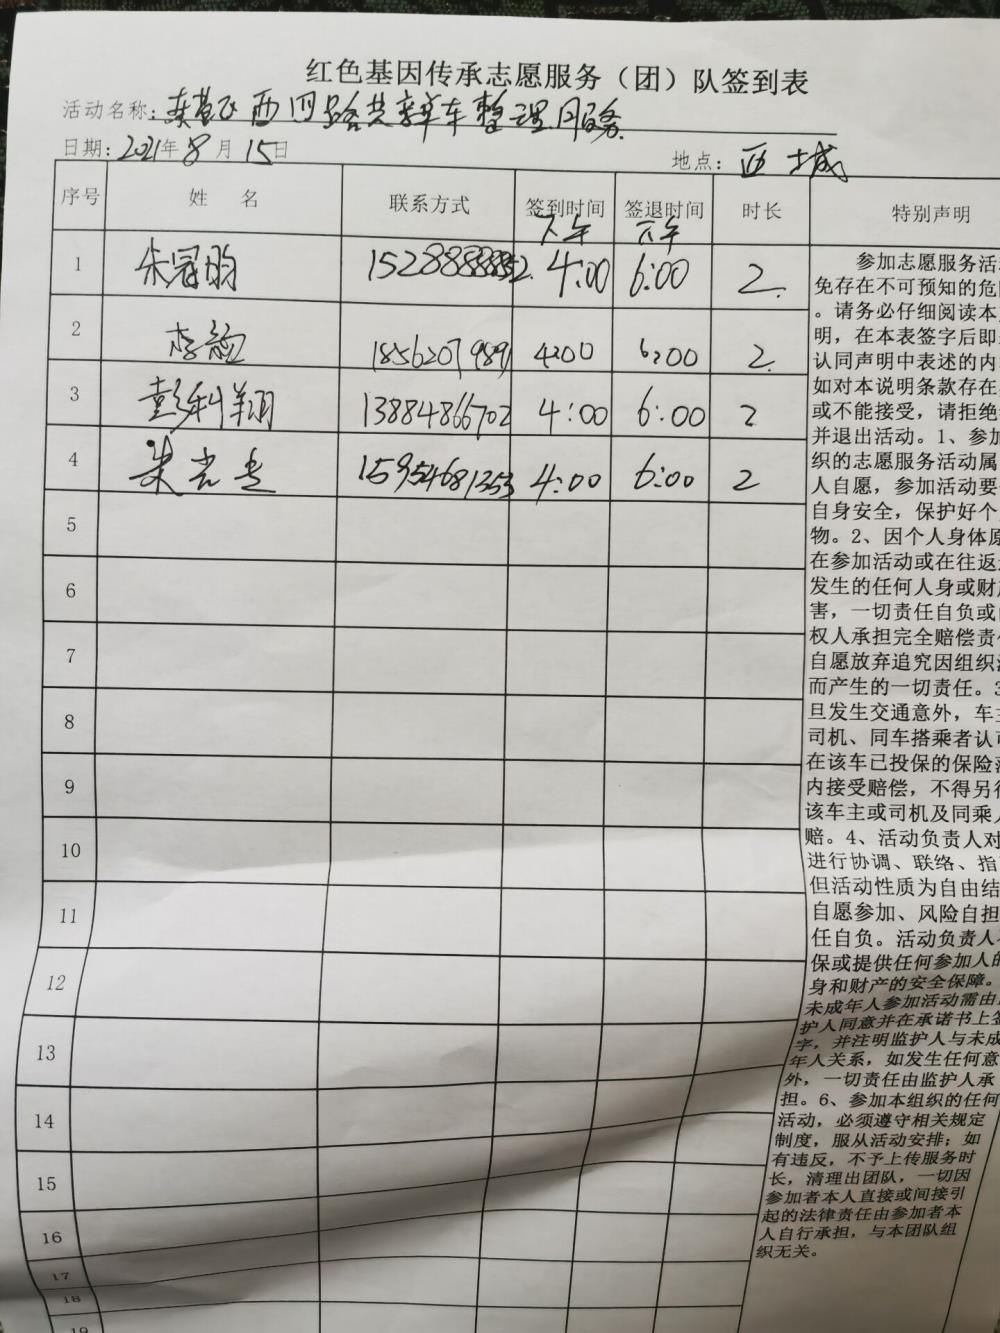 红色基因传承志愿服务（团）队签到表
活动名称：东营区西四路共享单车整理服务
日期：2021年8月15日
地点：西城
序号 姓名 联系方式 签到时间 签退时间 时长 特别声明
下午 下午
1 朱冠昀 4:00 6:00 2
2 李 18562079891 4:00 6:00 2
3 彭利翔 13884866702 4:00 6:00 2
4 朱光 15954681353 4:00 6:00 2
5
6
7
8
9
10
11
12
13
14
15
16
17
18
19
参加志愿服务活
免存在不可预知的危
。请务必仔细阅读本
明，在本表签字后即
认同声明中表述的内
如对本说明条款存在
或不能接受，请拒绝
并退出活动。1、参加
织的志愿服务活动属
人自愿，参加活动要
自身安全，保护好个
物。2、因个人身体原
在参加活动或在往返
发生的任何人身或财
害，一切责任自负或
权人承担完全赔偿责
自愿放弃追究因组织
而产生的一切责任。3
旦发生交通意外，车
司机、同车搭乘者认
在该车已投保的保险
内接受赔偿，不得另
该车主或司机及同乘人
赔。4、活动负责人对
进行协调、联络、指
但活动性质为自由结
自愿参加、风险自担
任自负。活动负责人
保或提供任何参加人的
身和财产的安全保障。
未成年人参加活动需由
护人同意并在承诺书上签
字，并注明监护人与未成
年人关系，如发生任何意
外，一切责任由监护人承
担。6、参加本组织的任何
活动，必须遵守相关规定
制度，服从活动安排；如
有违反，不予上传服务时
长，清理出团队，一切因
参加者本人直接或间接引
起的法律责任由参加者本
人自行承担，与本团队组
织无关。